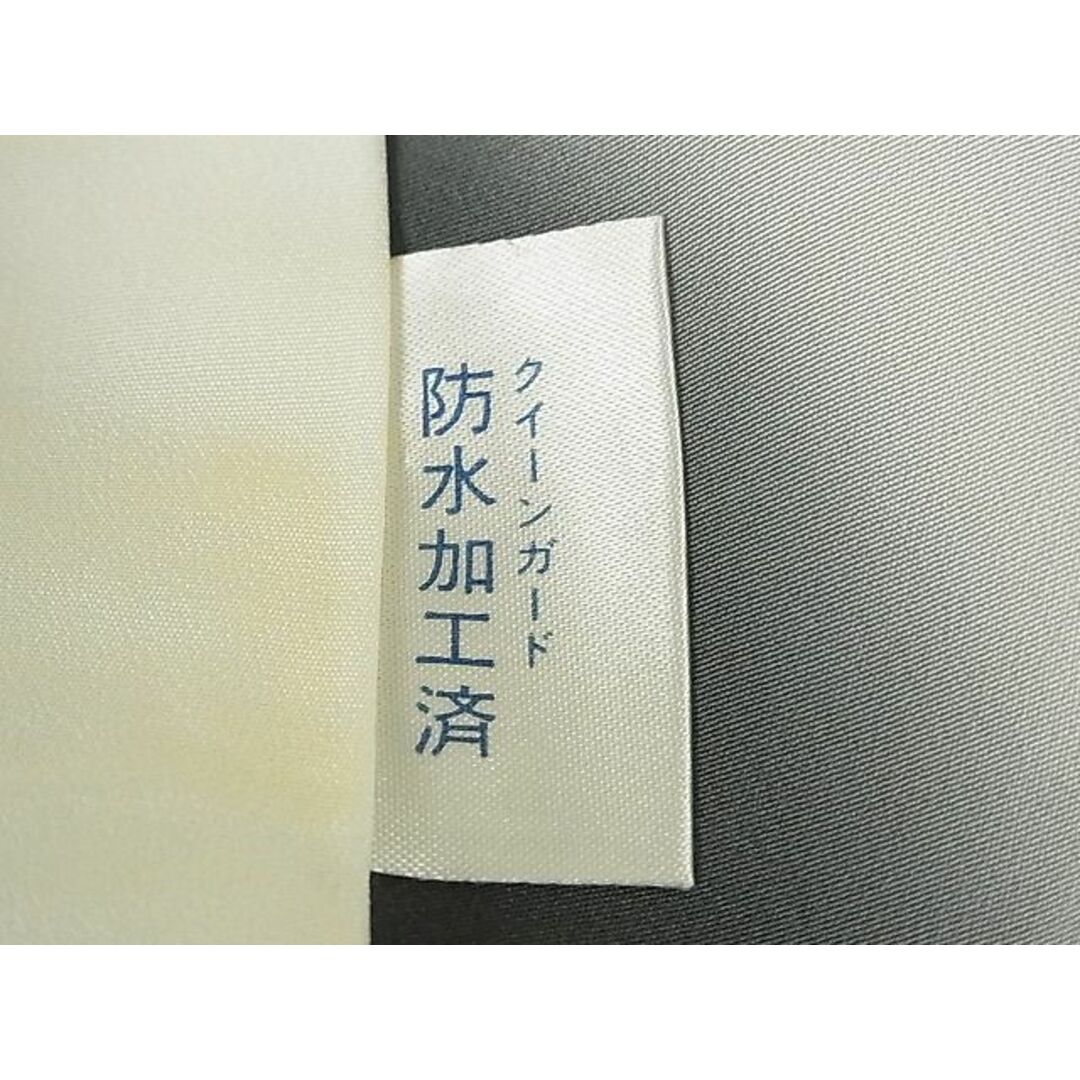 クイーンガード
防水加工済